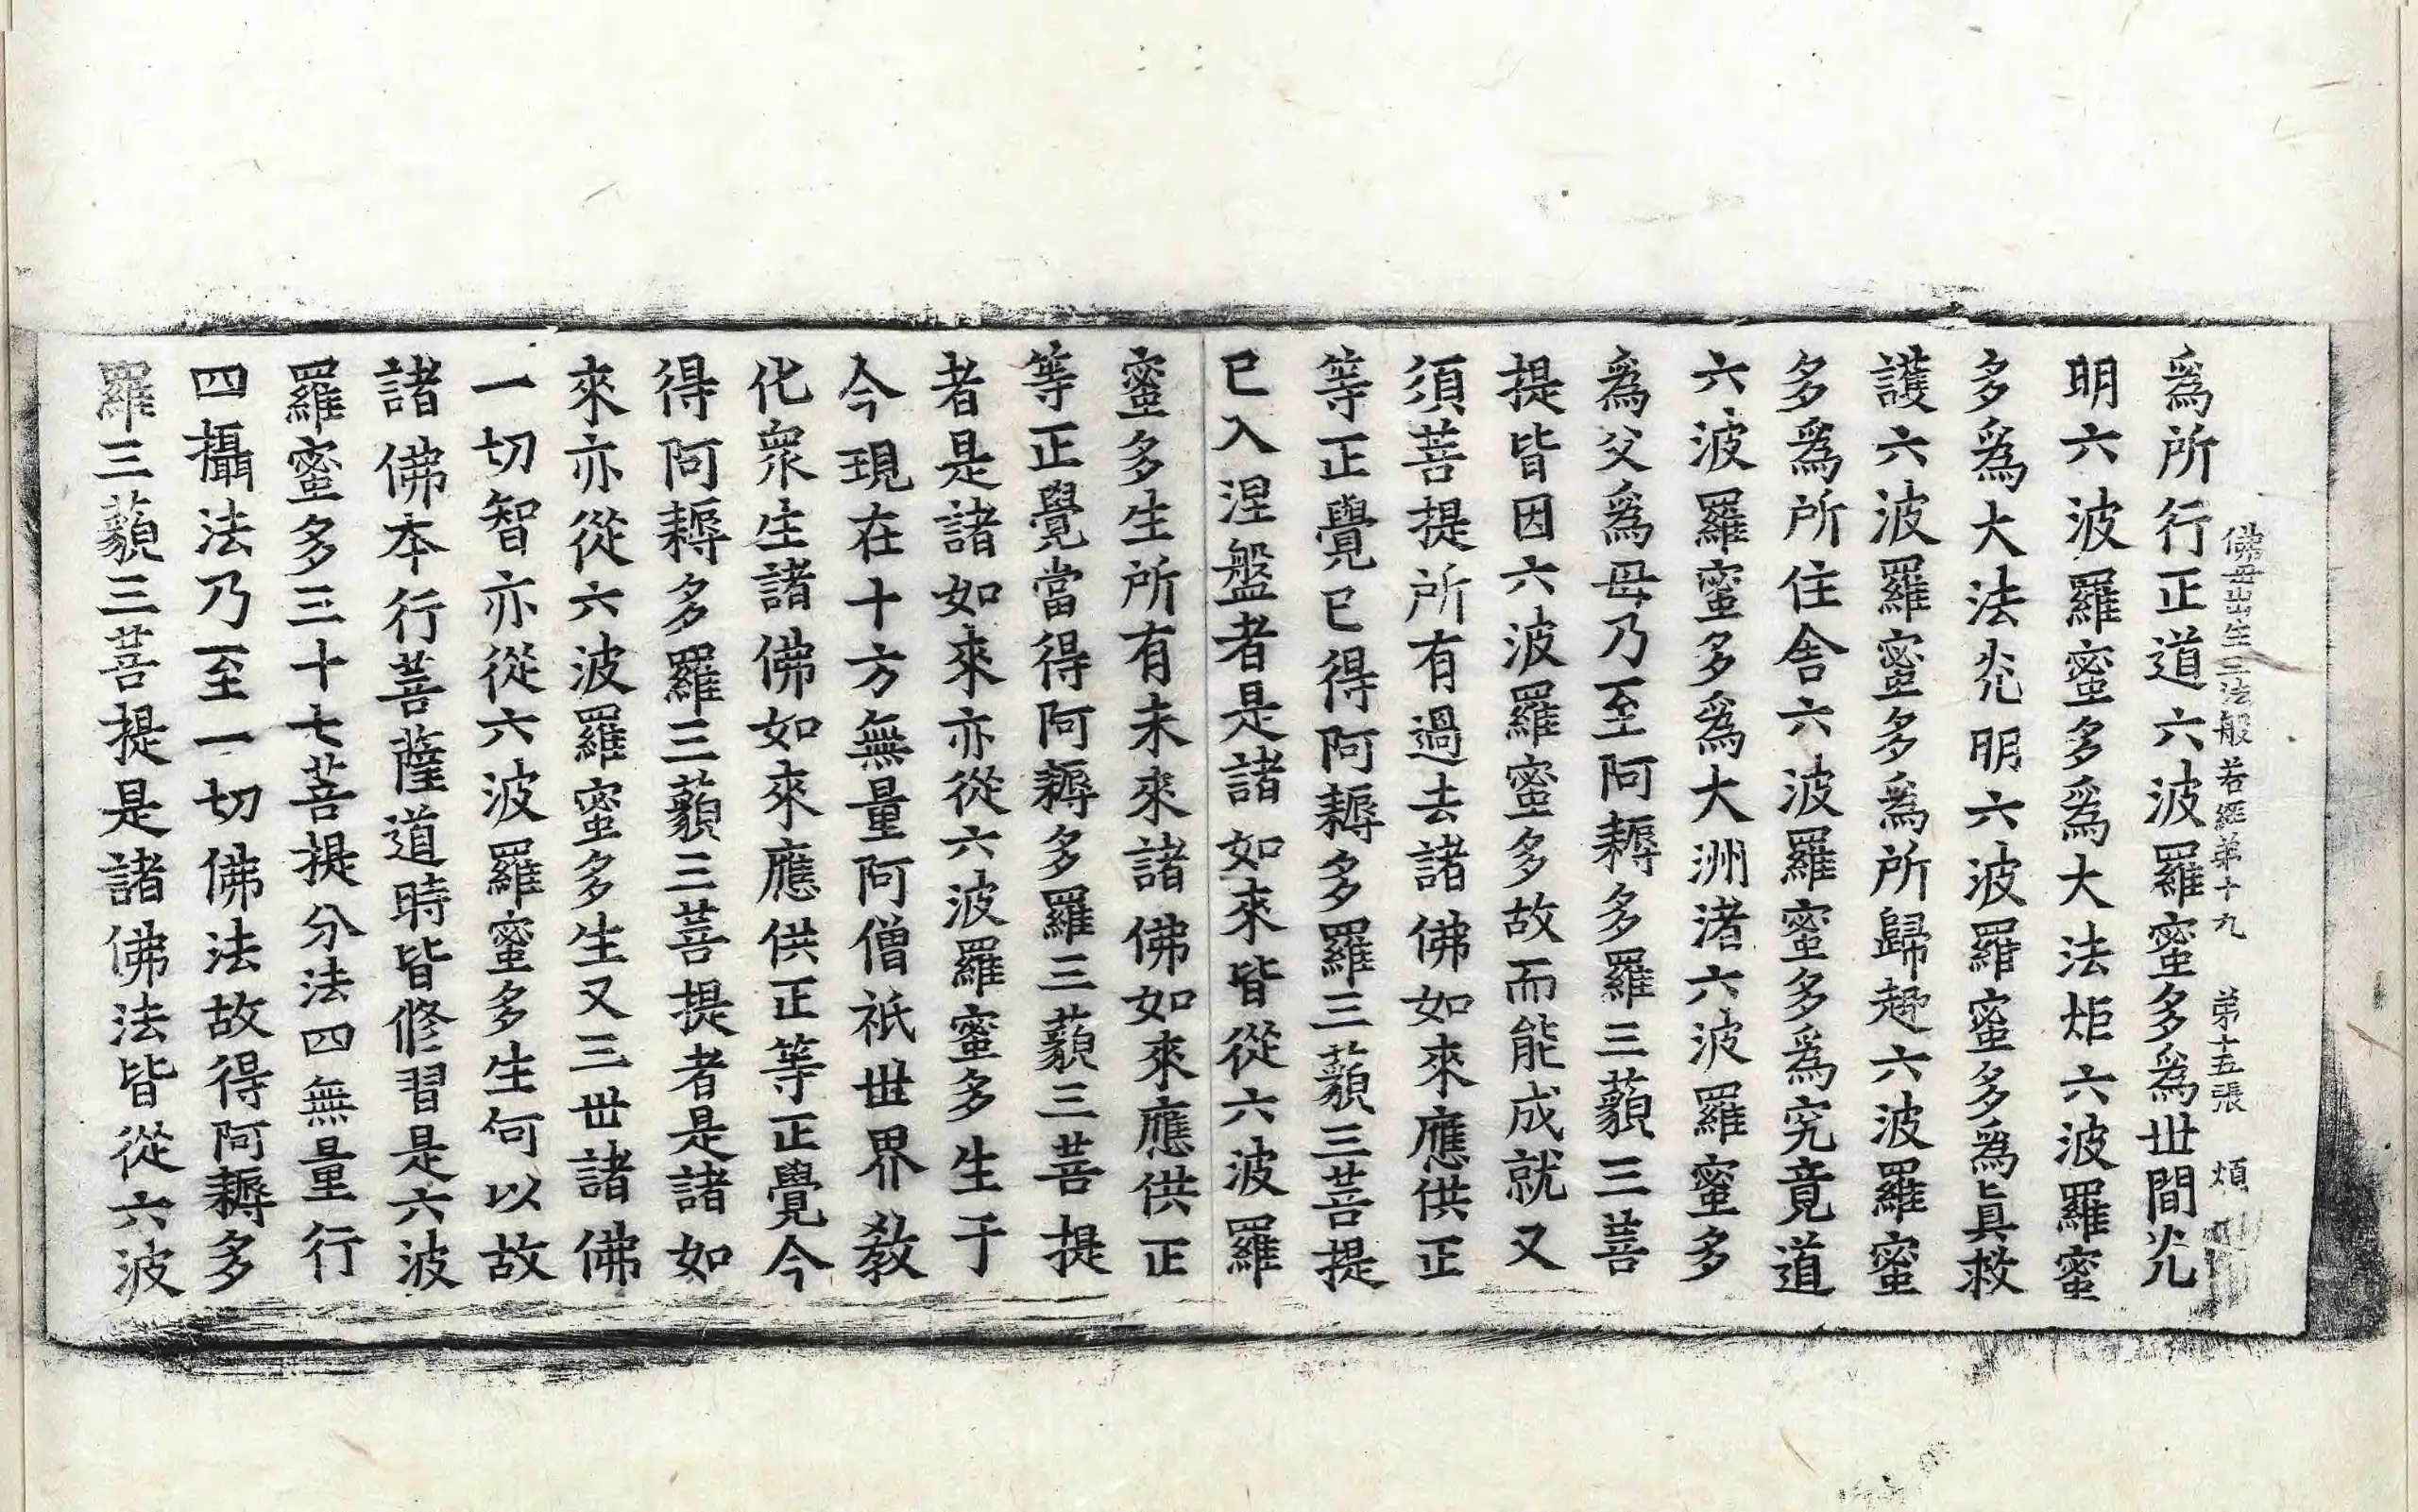 佛母出生三法般若經弟十九　弟十五張　煩
爲所行正道六波羅蜜多爲世間光
明六波羅蜜多爲大法炬六波羅蜜
多爲大法光明六波羅蜜多爲眞救
護六波羅蜜多爲所歸趣六波羅蜜
多爲所住舎六波羅蜜多爲究竟道
六波羅蜜多爲大洲渚六波羅蜜多
爲父爲母乃至阿耨多羅三藐三菩
提皆因六波羅蜜多故而能成就又
須菩提所有過去諸佛如來應供正
等正覺已得阿耨多羅三藐三菩提
已入涅盤者是諸如來皆從六波羅
蜜多生所有未來諸佛如來應供正
等正覺當得阿耨多羅三藐三菩提
者是諸如來亦從六波羅蜜多生于
今現在十方無量阿僧祇世界教
化衆生諸佛如來應供正等正覺今
得阿耨多羅三藐三菩提者是諸如
來亦從六波羅蜜多生又三世諸佛
一切智亦從六波羅蜜多生何以故
諸佛本行菩薩道時皆修習是六波
羅蜜多三十七菩提分法四無量行
四攝法乃至一切佛法故得阿耨多
羅三藐三菩提是諸佛法皆從六波